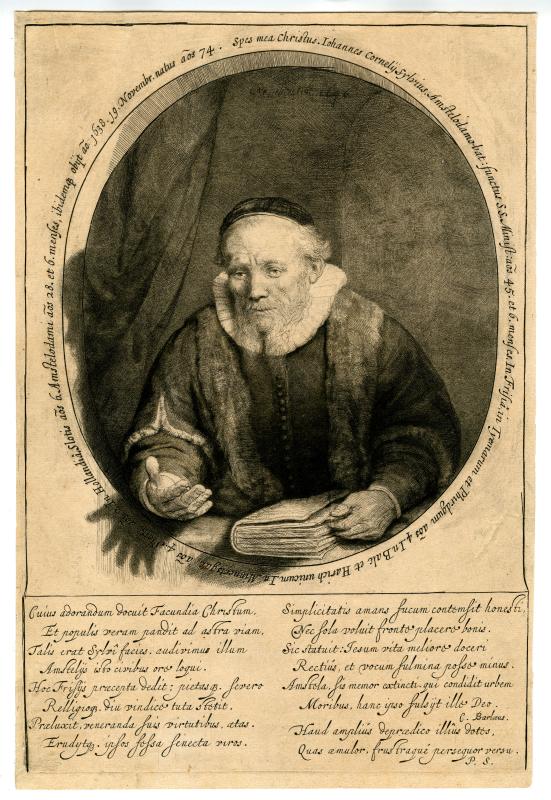 Spes mea Christus. Iohannes Cornelij Sylvius, Amstelodamo-bat: functus S.S. Minist: aōs 45. et 6. menses. In Frisiâ: in Tyemarum et Phirdgum aōs 4. In Balc et Harich unicum. In Minertsga aōs 4. In Hollandiâ: Slotis aōs 6. Amstelodami aōs 28. et 6. menses, ibidemq. obijt aō 1638. 19. Novembr. natus aōs 74.
Cuius adorandum docuit Facundia Christum,
Et populis veram pandit ad astra viam,
Talis erat Sylvî facies. audivimus illum
Amstelijs isto civibus ore loqui.
Hoc Frisijs præcepta dedit; pietasq. severo
Relligioq. diu vindice tuta stetit.
Præluxit, veneranda suis virtutibus, ætas.
Erudijtq. ipsos fessa senecta viros.
Simplicitatis amans fucum contemsit honesti,
Nec sola voluit fronte placere bonis.
Sic statuit: Iesum vita meliore doceri
Rectiùs, et vocum fulmina posse minus.
Amstola, sis memor extincti qui condidit urbem
Moribus, hanc ipso fulsijt ille Deo.
C. Barlæus.
Haud ampliùs deprædico illius dotes,
Quas æmulor, frustraque persequor versu.
P. S.